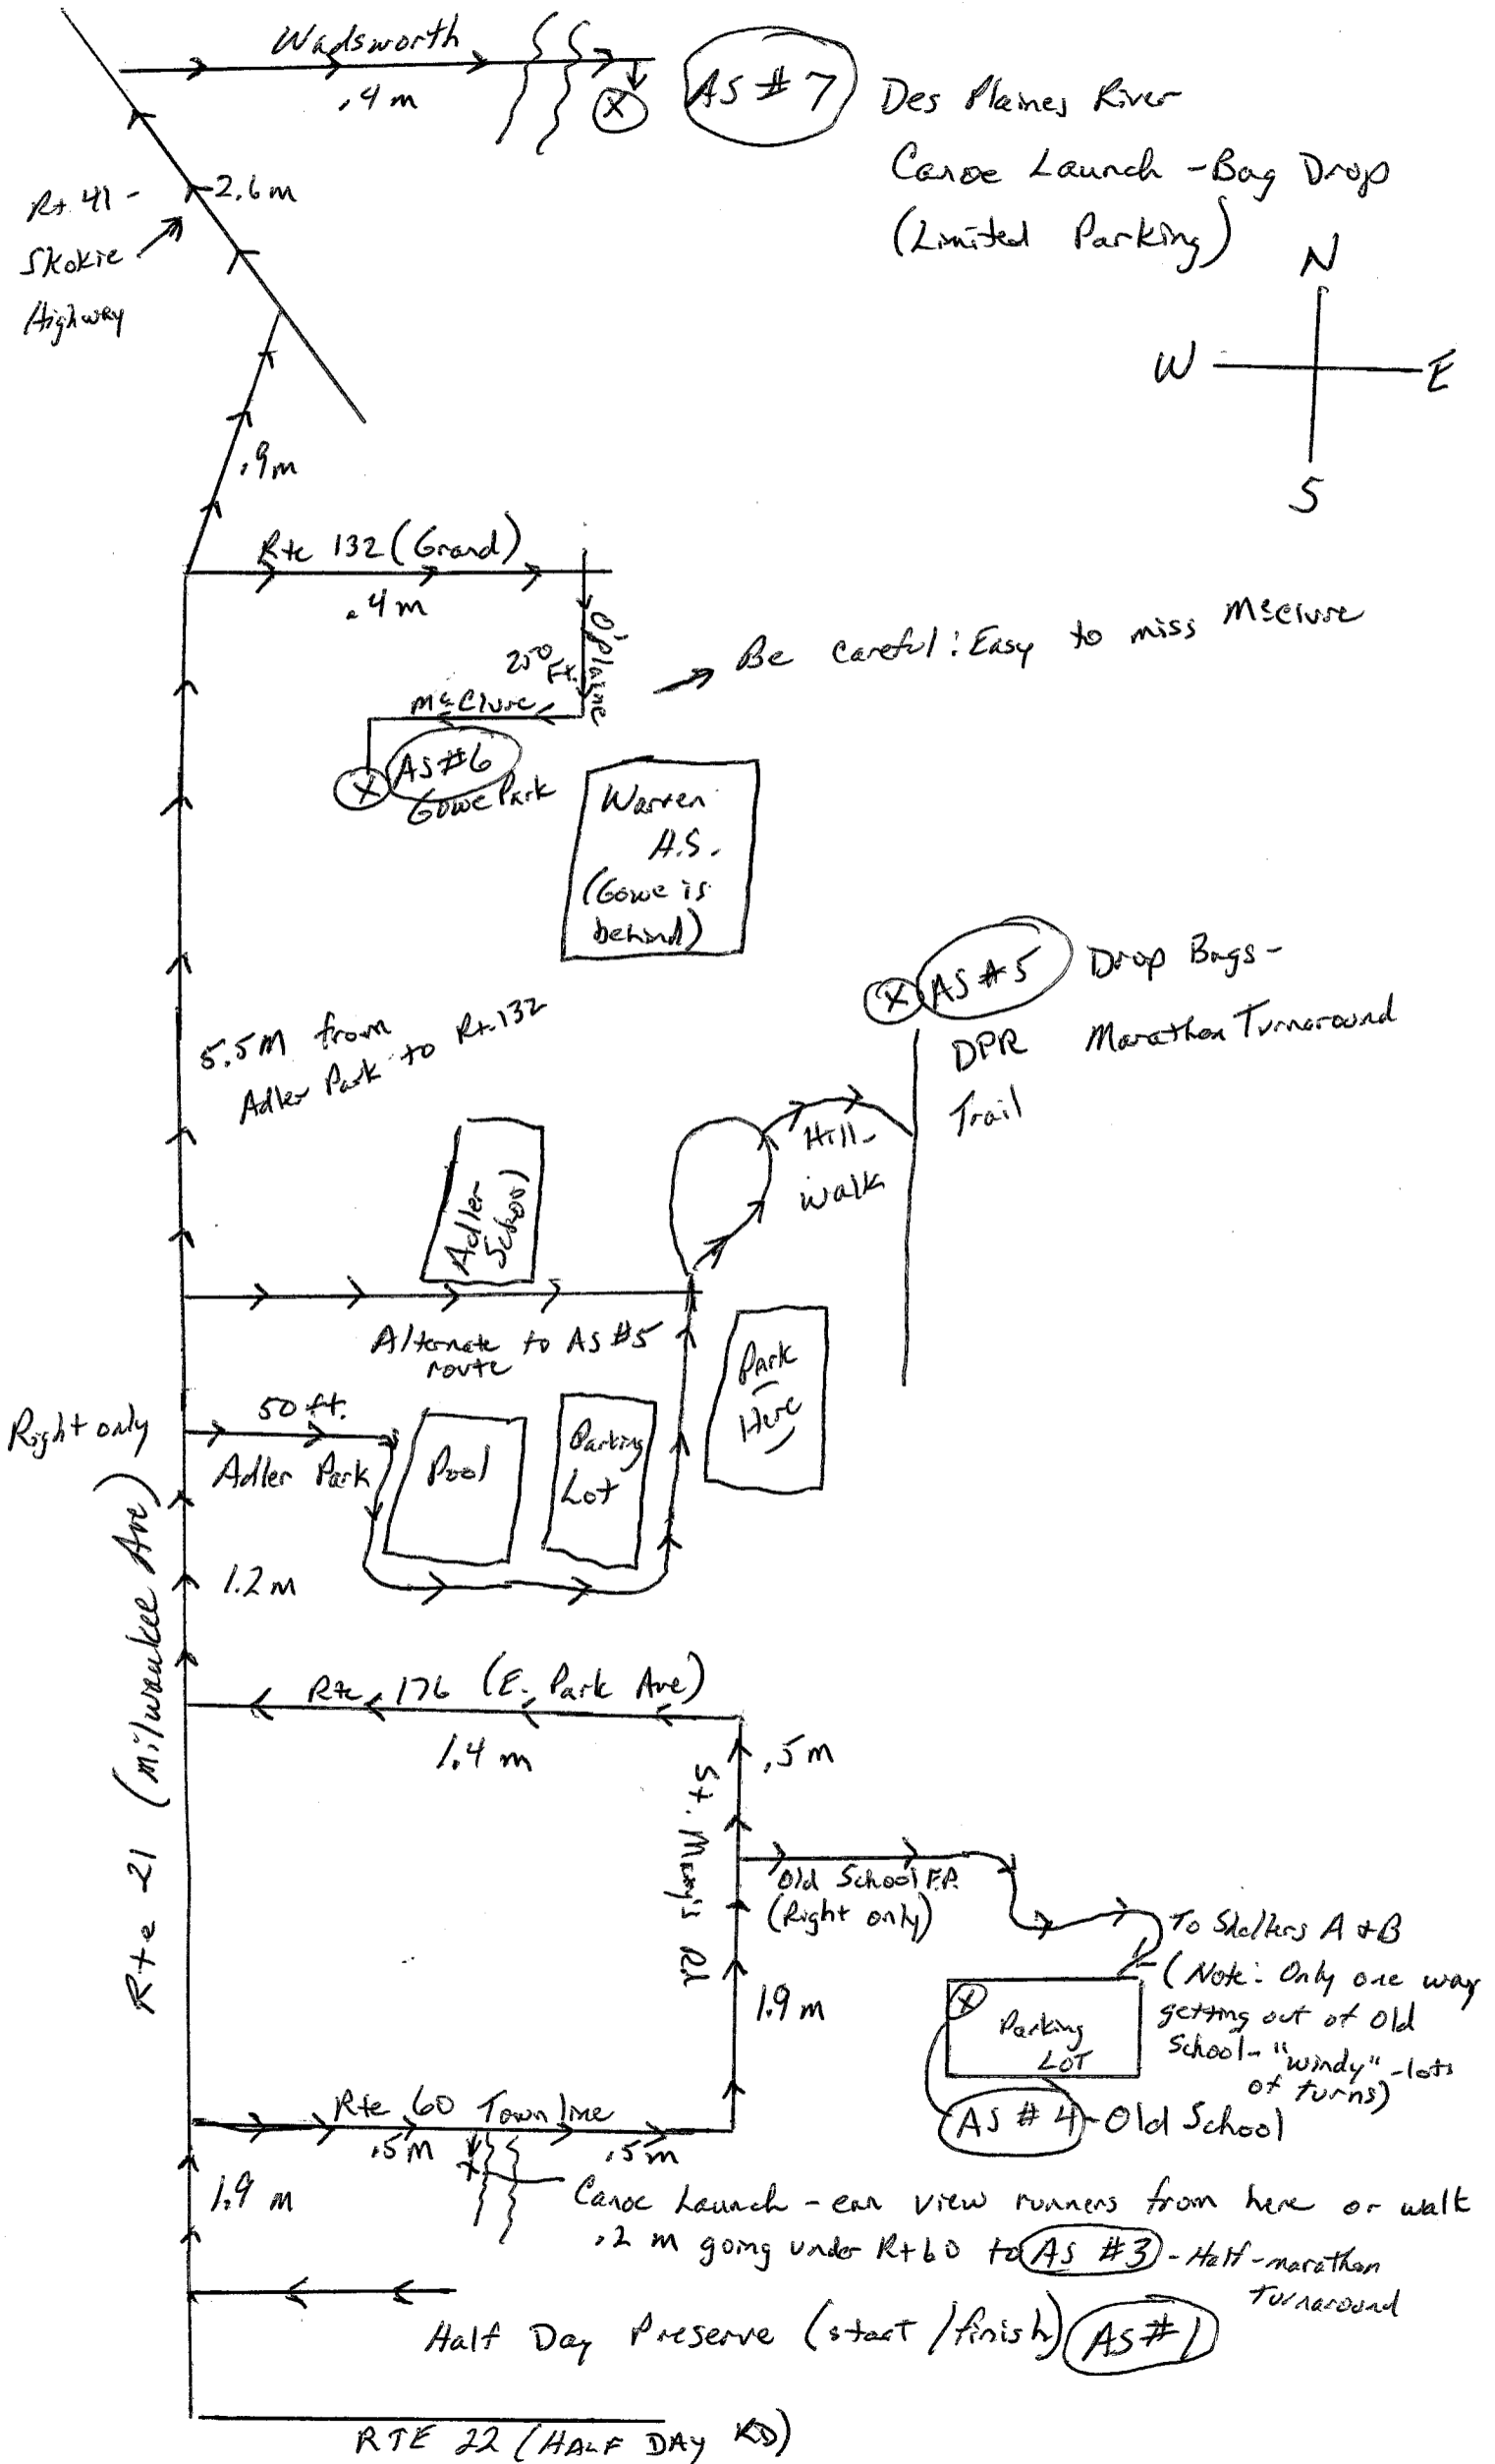 Wadsworth
.4 m
X
AS #7
Des Plaines River
Canoe Launch - Bag Drop
(Limited Parking)
Rt 41 -
Skokie
Highway
2.6 m
N
W
E
S
.9 m
Rte 132 (Grand)
.4 m
O'Plaine
250
Ft.
McClure
Be Careful: Easy to miss McClure
X
AS #6
Gowe Park
Warren
H.S.
(Gowe is
behind)
X
AS #5
Drop Bags -
Marathon Turnaround
DPR
Trail
5.5 M from
Adler Park to Rt. 132
Hill -
walk
Adler
School
Alternate to AS #5
route
Park
Here
Right only
50 ft.
Adler Park
Pool
Parking
Lot
1.2 m
Rte 21 (Milwaukee Ave)
Rte. 176 (E. Park Ave)
1.4 m
.5 m
St. Mary's Rd
Old School F.P.
(Right only)
To Shelters A + B
(Note: Only one way
getting out of Old
School - "windy" - lots
of turns)
1.9 m
X
Parking
LOT
AS #4 - Old School
Rte 60 Townline
.5 m
.5 m
x
1.9 m
Canoe Launch - can view runners from here or walk
.2 m going under Rt 60 to AS #3 - Half-marathon
turnaround
Half Day Preserve (start/finish) AS #1
RTE 22 (HALF DAY RD)